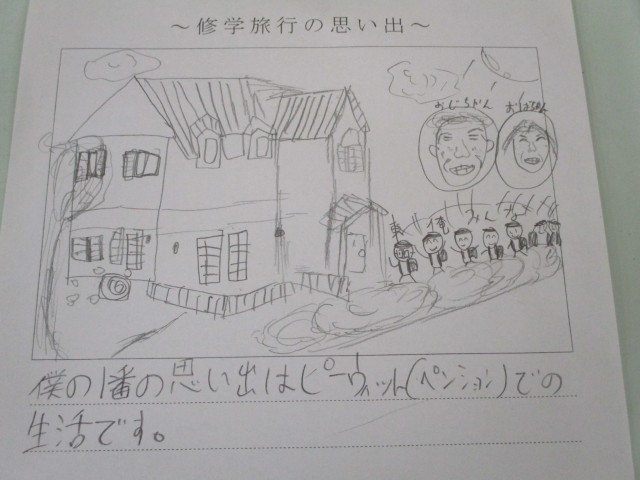 ～修学旅行の思い出～
おじちゃん おばちゃん
僕の1番の思い出はピーウィット(ペンション)での
生活です。